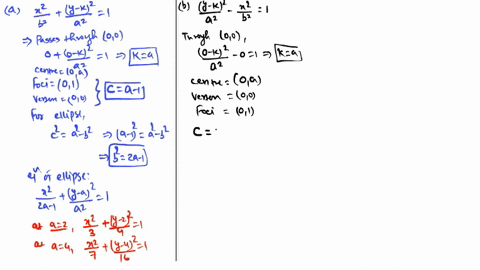 (a) x²/b² + (y-k)²/a² = 1
⇒ Passes through (0,0)
0 + (0-k)²/a² = 1 ⇒ k=a
centre = (0,a)
Foci = (0,1)
Vertex = (0,0) } C = a-1
for ellipse,
c² = a²-b² ⇒ (a-1)² = a²-b²
⇒ b² = 2a-1
eqⁿ of ellipse:
x²/2a-1 + (y-a)²/a² = 1
at a=2, x²/3 + (y-2)²/4 = 1
at a=4, x²/7 + (y-4)²/16 = 1
(b) (y-k)²/a² - x²/b² = 1
Through (0,0),
(0-k)²/a² - 0 = 1 ⇒ k=a
centre = (0,a)
Vertex = (0,0)
Foci = (0,1)
C =